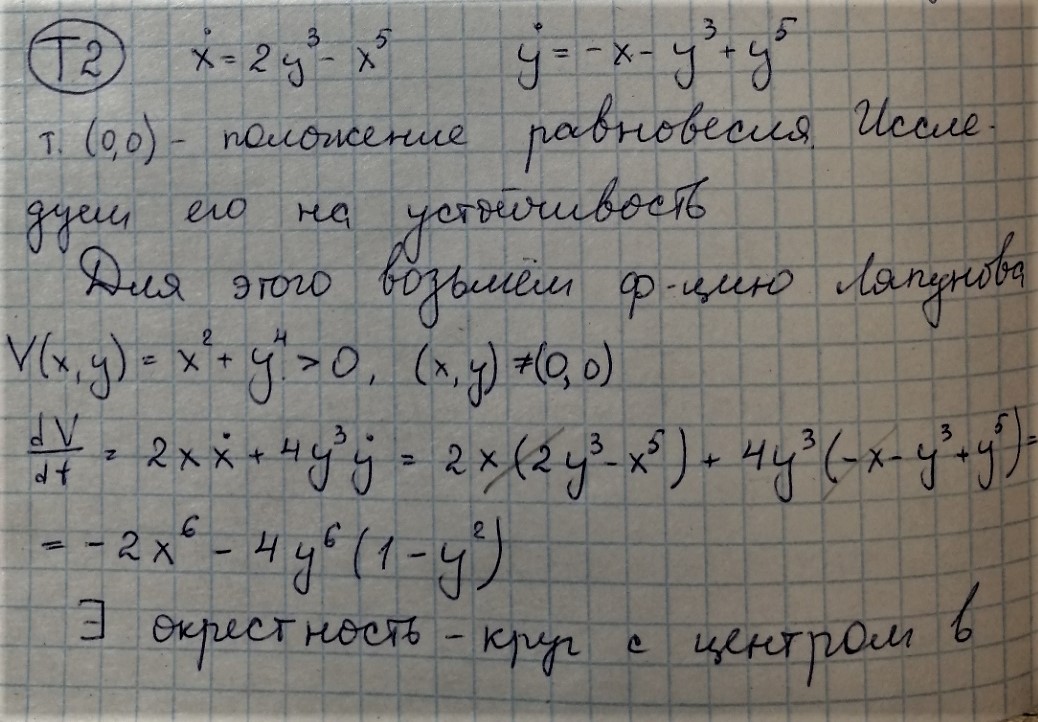 Т2 ẋ = 2y³ - x⁵ ẏ = -x - y³ + y⁵
т. (0,0) - положение равновесия. Иссле-
дуем его на устойчивость
Для этого возьмём ф-цию Ляпунова
V(x,y) = x² + y⁴ > 0, (x,y) ≠ (0,0)
dV/dt = 2xẋ + 4y³ẏ = 2x(2y³ - x⁵) + 4y³(-x - y³ + y⁵) =
= -2x⁶ - 4y⁶(1 - y²)
∃ окрестность - круг с центром в